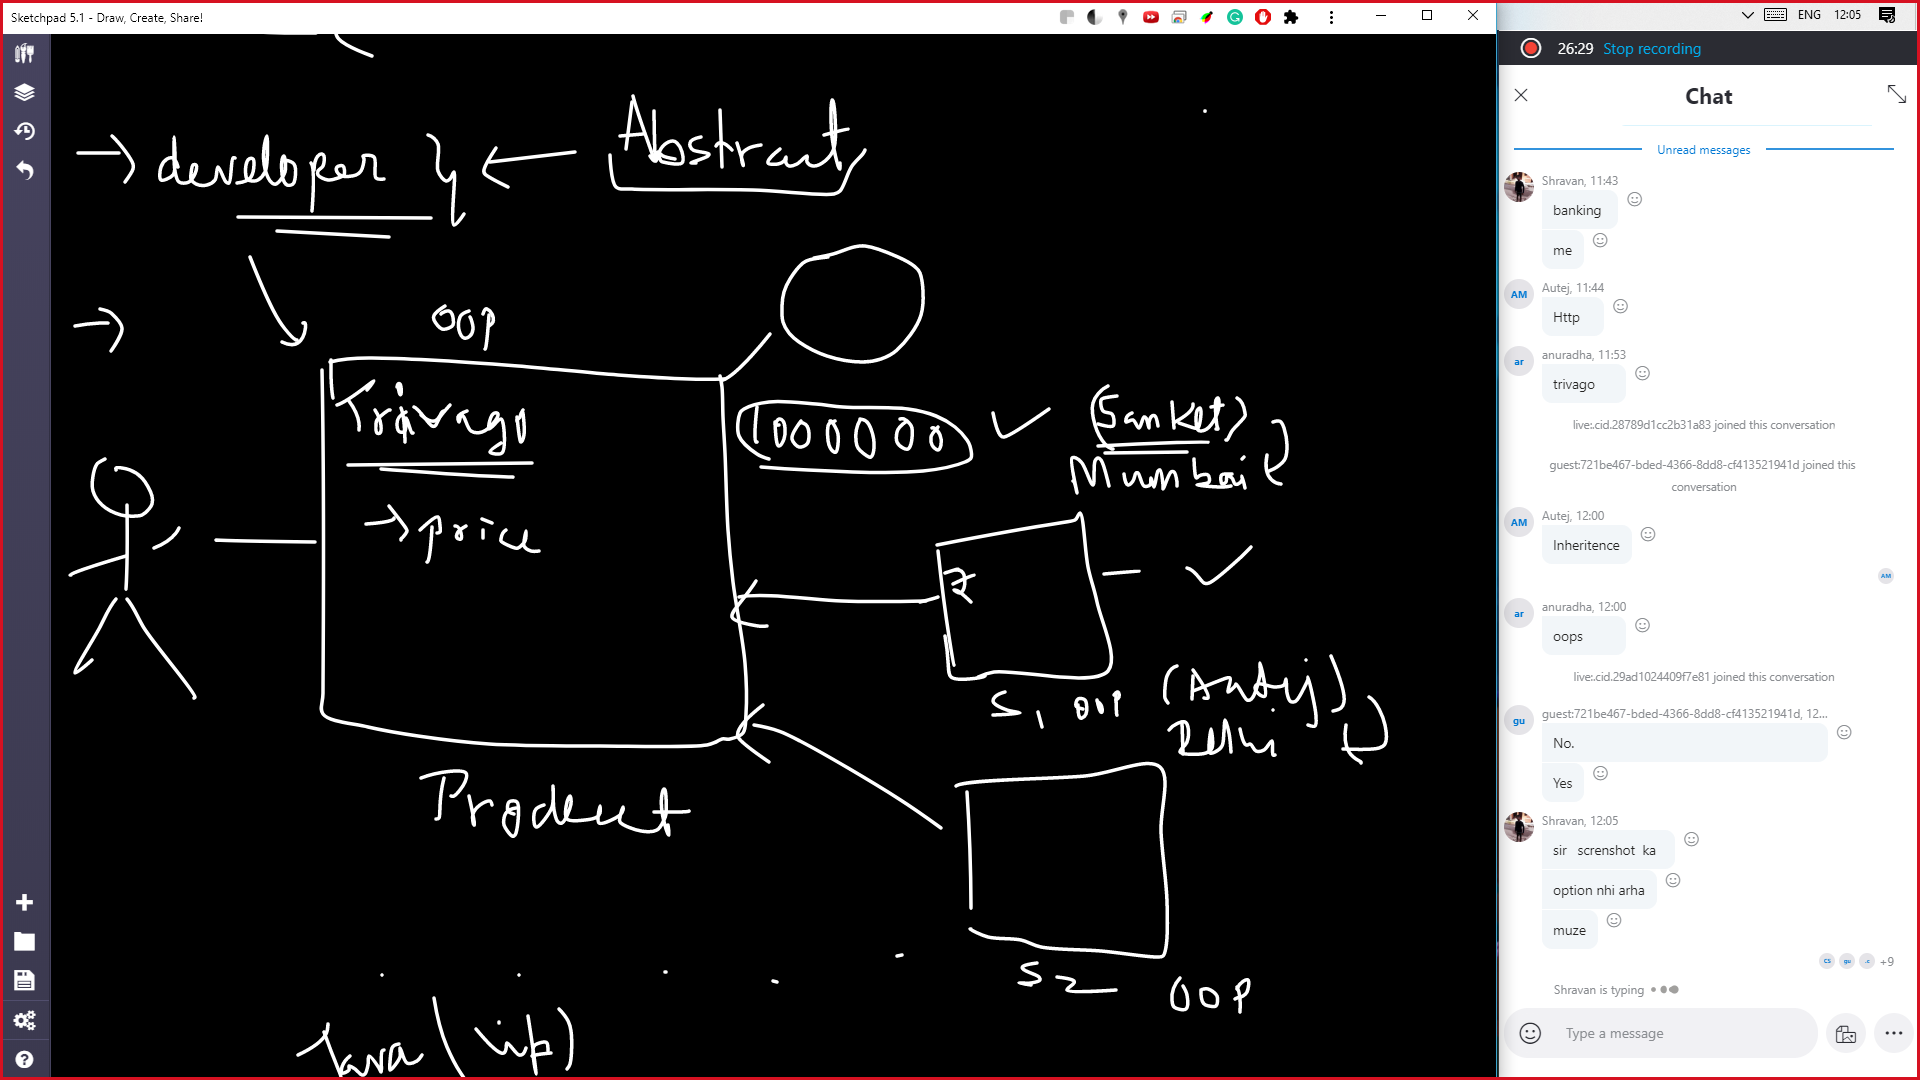 Sketchpad 5.1 - Draw, Create, Share!
→ developer } ← Abstract
→
OOP
Trivago
→ price
1000000 ✓
(Sanket)
Mumbai
✓
S1 OOP
Delhi
Product
S2
OOP
Java (
ENG 12:05
26:29 Stop recording
Chat
Unread messages
Shravan, 11:43
banking
me
AM
Autej, 11:44
Http
ar
anuradha, 11:53
trivago
live:.cid.28789d1cc2b31a83 joined this conversation
guest:721be467-bded-4366-8dd8-cf413521941d joined this
conversation
AM
Autej, 12:00
Inheritence
AM
ar
anuradha, 12:00
oops
live:.cid.29ad1024409f7e81 joined this conversation
gu
guest:721be467-bded-4366-8dd8-cf413521941d, 12...
No.
Yes
Shravan, 12:05
sir screnshot ka
option nhi arha
muze
CS gu .c +9
Shravan is typing
Type a message